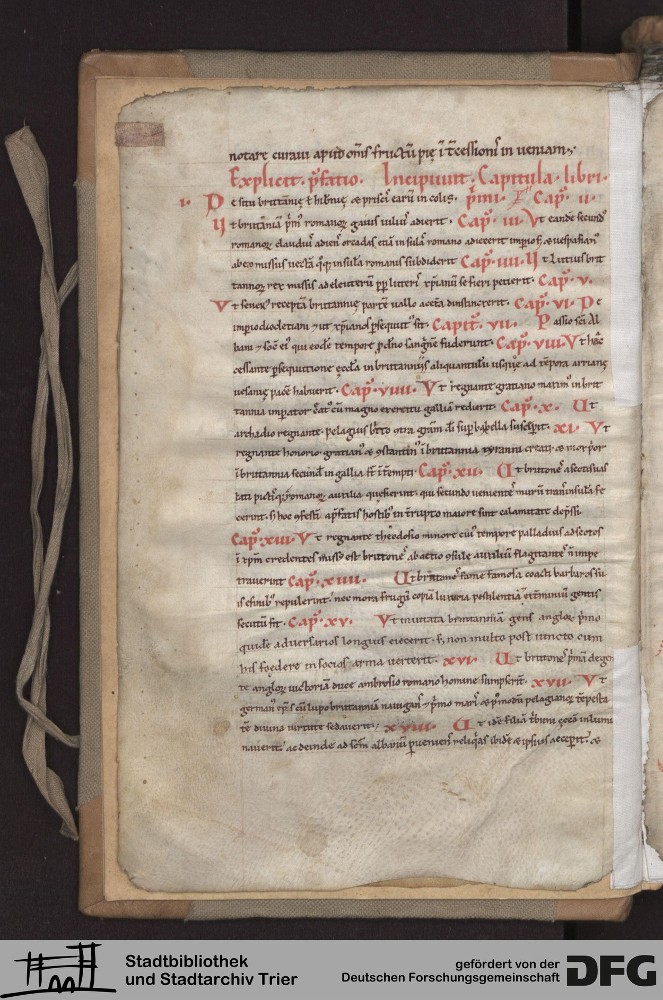 notare curavi apud om̅s fructu̅ pie̜ i̅t̅cessionis in veniam;
Explicit p̅fatio. Incipiunt Capitula libri
.i. De situ brittanie̜ t̅ hib̅nie̜ & prisci earu̅ in colis. p̅mi. Cap. ii.
Ut brita̅nia̅ p̅m' romanoꝝ gaius iulius adierit. Cap. iii. Ut eande̅ secund'
romanoꝝ claudiu̅ adiens orcadas etia̅ insulas romano adiecerit imperio, & vespasian'
ab eo missus vecta̅ q̊q̨ insula̅ romanis subdiderit Cap. iiii. Ut Lucius brit
tannoꝝ rex missis ad eleuteru̅ pp̅ litteris xp̅ianu̅ se fieri petierit. Cap. v.
Ut sever' recepta̅ brittannie̜ parte̅ vallo a cet̅a distinxerit. Cap. vi. De
imperio diocletiani & ut xp̅ianos p̅sequut' sit. Capit. vii. Passio sc̅i Al
bani & soc̅ ei' qui eode̅ tempore p̅ d̅no sangine̅ fuderunt. Cap. viii. Ut hac
cessante p̅sequutione eccl̅a in brittanniis aliquantulu̅ usq̨ ad te̅pora arriane̜
vesanie̜ pace̅ habuerit. Cap. viiii. Ut regnante gratiano maxim' in brit
tannia imperator c̅at' cu̅ magno exercitu gallia̅ redierit. Cap. x. Ut
archadio regnante pelagius b̅tto c̅tra gra̅m d̅i sup̅ba bella susceperit. xi. Ut
regnante honorio gratian' & c̅stantin' i̅ brittannia tyranni creati & mox prior
i̅ brittannia secund' in gallia s̅t i̅te̅mpti. Cap. xii. Ut brittones a scotis vas
tati pictisq̨ romanoꝝ auxilia que̜sierint. qui secundo venientes muru̅ trans insula̅ fe
cerint. s̅ hoc c̅festi̅ a p̅fatis hostib' interrupto maiore sint calamitate dep̅ssi.
Cap. xiii. Ut regnante theodosio minore cui' tempore palladius ad scotos
i̅ xp̅m credentes miss' est brittones ab aetio c̅sule auxiliu̅ flagitantes n̅ impe
traverint Cap. xiiii. Ut brittones fame famosa coacti barbaros su
is e finib' repulerint. nec mora frugu̅ copia luxuria pestilentia & exterminiu̅ gentis
secutu̅ sit. Cap. xv. Ut invitata brittanniā gens angloꝝ p̅mo
quide̅ adversarios longius eiecerit. s; non multo post iuncto cum
his foedere in socios arma verterit. xvi. Ut brittones p̅ma̅ de gen
te angloꝝ victoria̅ duce ambrosio romano homine sumpserint. xvii. Ut
german' ep̅s cu̅ lupo brittannia̅ navigans & p̅mo maris & p̅modu̅ pelagianoꝝ te̅pesta
te̅ divina virtute sedaverit. xviii. Ut ide̅ filia̅ t̅buni ce̜ca̅ inlumi
naverit. ac deinde ad sc̅m albanu̅ p̅veniens reliq̊as ibide̅ & ipsius acceperit. &
Stadtbibliothek
und Stadtarchiv Trier
gefördert von der
Deutschen Forschungsgemeinschaft
DFG